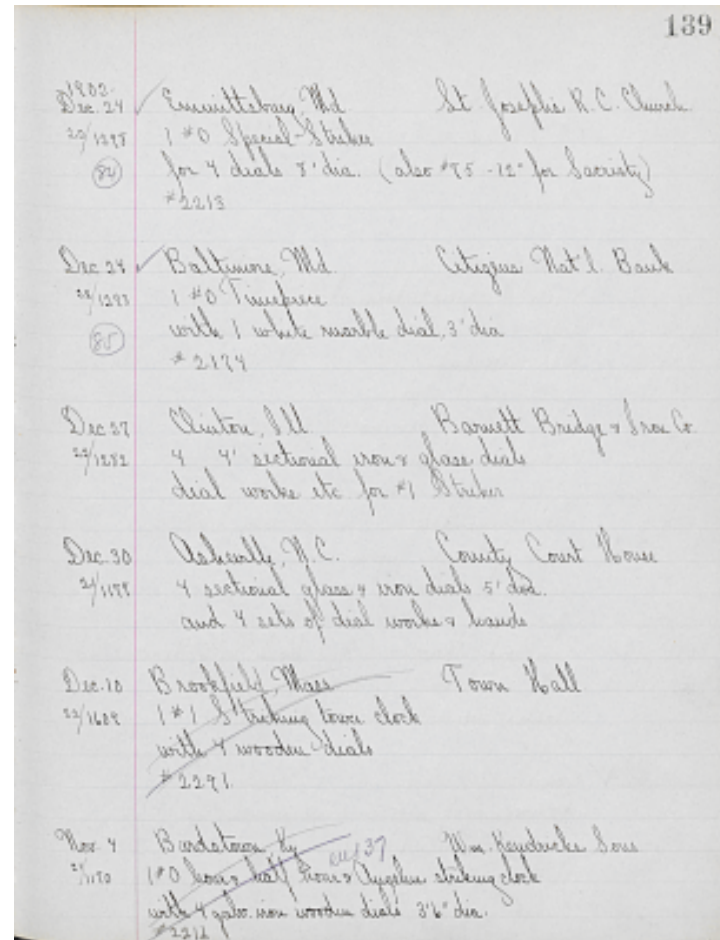 139
1902.
Dec. 24 ✓ Emmittsburg, Md. St. Joseph's R. C. Church
1 #0 Special-Striker
for 4 dials 8' dia. (also #85 - 12" for Sacristy)
#2213
Dec 24 ✓ Baltimore, Md. Citizens Nat'l. Bank
1 #0 Timepiece
85 with 1 white marble dial, 3' dia
Dec 27 Clinton, Ill Barnett Bridge & Iron Co.
4 4' sectional iron & glass dials
dial works etc for #1 Striker
Dec. 30 Asheville, N.C. County Court House
4 sectional glass & iron dials 5' dia.
and 4 sets of dial works & hands
Dec. 10 Brookfield, Mass Town Hall
1 #1 Striking tower clock
with 4 wooden dials
#2291.
Nov. 4 Bardstown, Ky Wm. Kendricks Sons
1 #0 hour & half hour & Angelus striking clock
with 4 galv. iron wooden dials 3'6" dia.